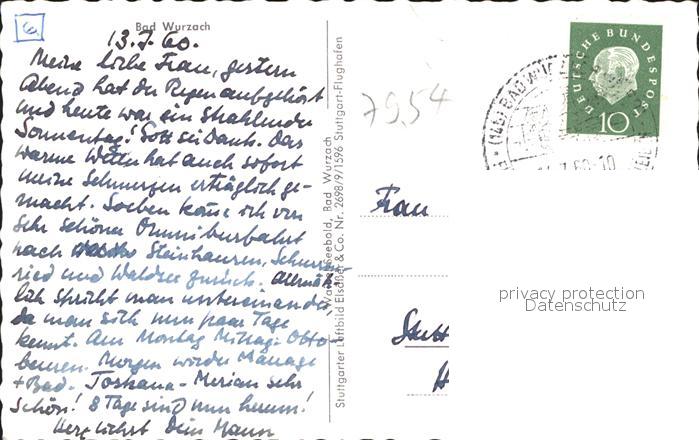 6
Bad Wurzach
13.7.60.
Meine liebe Frau, gestern
Abend hat der Regen aufgehört
und heute war ein strahlender
Sonnentag! Gott sei Dank. Das
warme Wetter hat auch sofort
meine Schmerzen erträglich ge-
macht. Soeben komme ich von
sehr schöner Omnibusfahrt
nach Steinhausen, Schussen-
ried und Waldsee zurück. Allmäh-
lich spricht man untereinander
da man sich nun paar Tage
kennt. Am Montag Mittag: Otto-
beuren. Morgen wieder Massage
+ Bad. Toskana - Merian sehr
schön! 8 Tage sind nun herum!
Herzlichst Dein Mann
Seebold, Bad Wurzach
Stuttgarter Luftbild Elsäßer & Co. Nr. 2698/9/1596 Stuttgart-Flughafen
79,54
DEUTSCHE BUNDESPOST
10
(14b) BAD WURZ
7.60-10
Frau
Stutt
privacy protection
Datenschutz